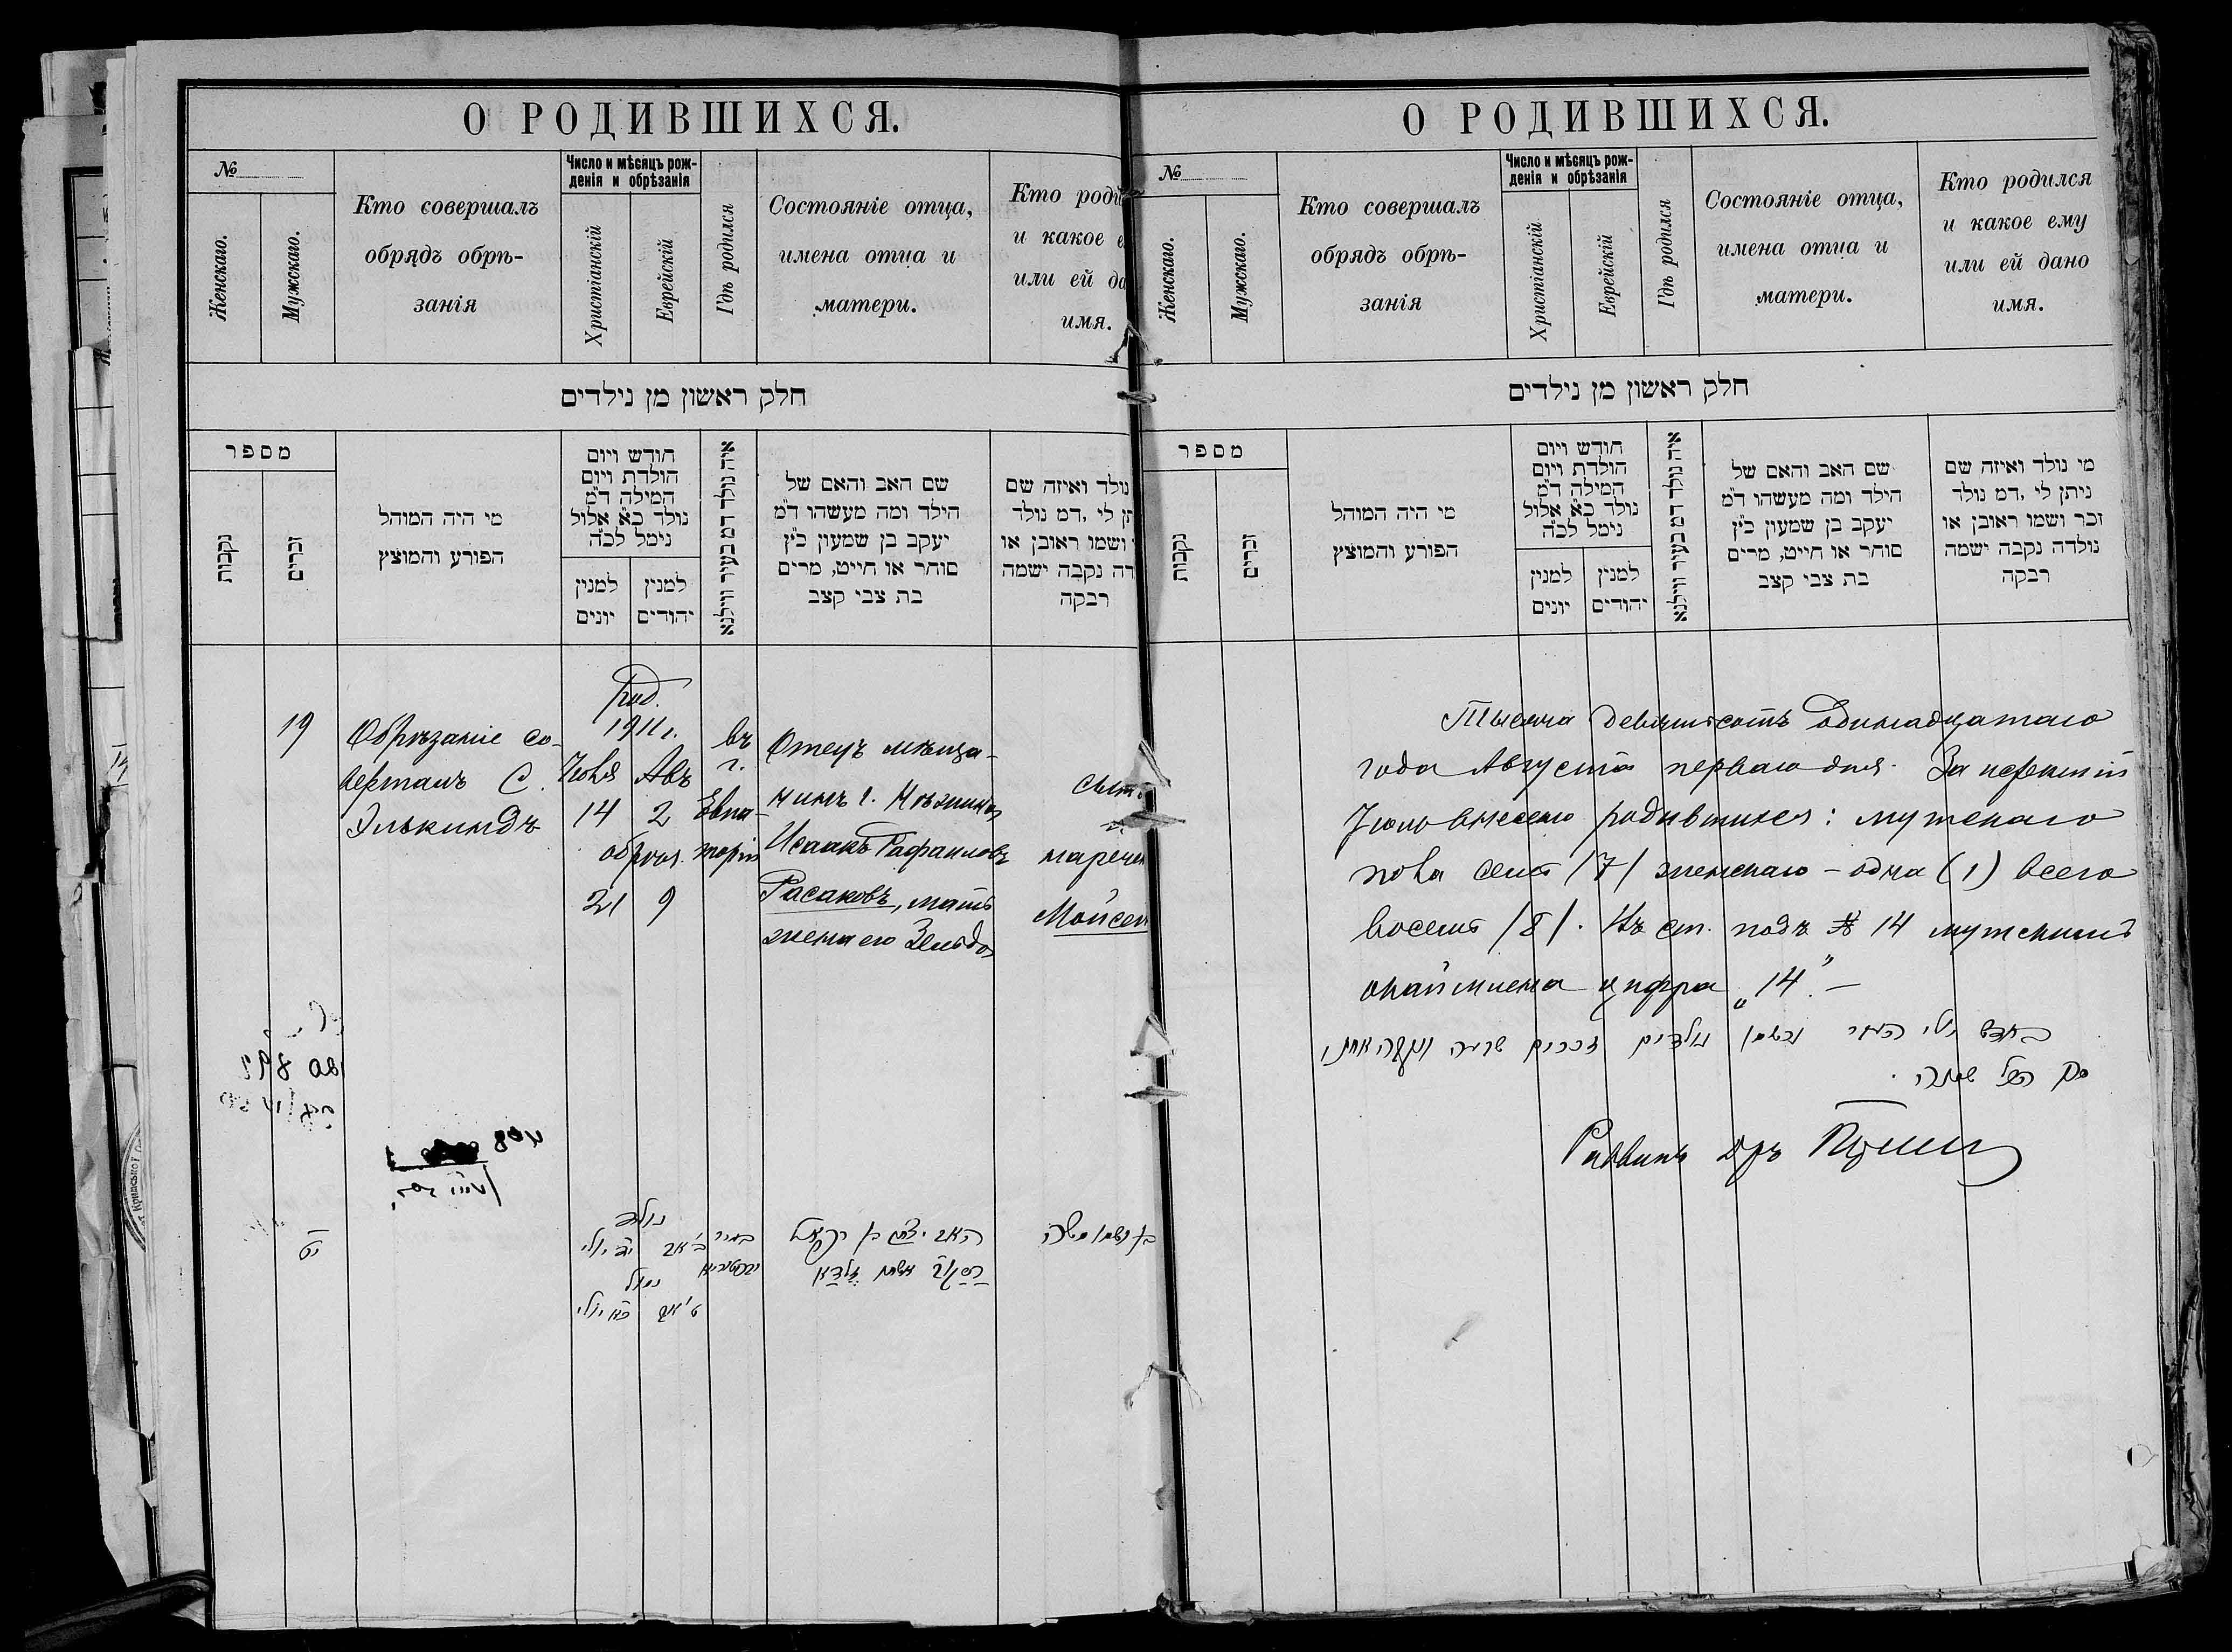 О РОДИВШИХСЯ.
№
Женскаго.
Мужскаго.
Кто совершалъ
обрядъ обрѣ-
занія
Число и мѣсяцъ рож-
денія и обрѣзанія
Христіанскій
Еврейскій
Гдѣ родился
Состояніе отца,
имена отца и
матери.
Кто роди
и какое е
или ей да
имя.
חלק ראשון מן נילדים
מספר
נקבות
זכרים
מי היה המוהל
הפורע והמוצץ
חודש ויום
הולדת ויום
המילה ד״מ
נולד כ״א אלול
נימל לכ״ה
למנין
יונים
למנין
יהודים
איה נולד דמ בעיר ווילנא
שם האב והאם של
הילד ומה מעשהו ד״מ
יעקב בן שמעון כ״ץ
סוחר או חייט, מרים
בת צבי קצב
נולד ואיזה שם
תן לי ,דמ נולד
ושמו ראובן או
דה נקבה ישמה
רבקה
19
Обрѣзаніе со-
вершалъ С.
Элькиндъ
род.
1911 г.
Іюля Авъ
14 2
обрѣз.
21 9
въ
г.
Евпа-
торіи
Отецъ мѣща-
нинъ г. Нѣжина
Исаакъ Рафаиловъ
Расаковъ, мать
жена его Зельда
сынъ
нарече
Мойсей
יט
נולד
ב׳ אב
יד יולי
נמול
ט׳ אב כא יולי
בעיר
האב יצחק בן
אשתו זלדא
בן ושמו משה
О РОДИВШИХСЯ.
№
Женскаго.
Мужскаго.
Кто совершалъ
обрядъ обрѣ-
занія
Число и мѣсяцъ рож-
денія и обрѣзанія
Христіанскій
Еврейскій
Гдѣ родился
Состояніе отца,
имена отца и
матери.
Кто родился
и какое ему
или ей дано
имя.
חלק ראשון מן נילדים
מספר
נקבות
זכרים
מי היה המוהל
הפורע והמוצץ
חודש ויום
הולדת ויום
המילה ד״מ
נולד כ״א אלול
נימל לכ״ה
למנין
יונים
למנין
יהודים
איה נולד דמ בעיר ווילנא
שם האב והאם של
הילד ומה מעשהו ד״מ
יעקב בן שמעון כ״ץ
סוחר או חייט, מרים
בת צבי קצב
מי נולד ואיזה שם
ניתן לי ,דמ נולד
זכר ושמו ראובן או
נולדה נקבה ישמה
רבקה
Тысяча девятьсотъ одинадцатаго
года Августа перваго дня. За
Іюль внесено родившихся: мужскаго
пола семь /7/ женскаго – одна (1) всего
восемь /8/. Въ ст. подъ № 14 мужскимъ
цифра „14“. –
בחדש יולי נולדים זכרים
סך הכל שמנה.
Раввинъ Дръ